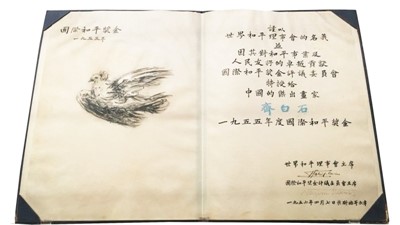 國際和平獎金
一九五五年
謹以
世界和平理事會的名義
並
因其對和平事業及
人民文化的卓越貢獻
國際和平獎金評議委員會
特授給
中國的傑出畫家
齊白石
一九五五年度國際和平獎金
世界和平理事會主席
國際和平獎金評議委員會主席